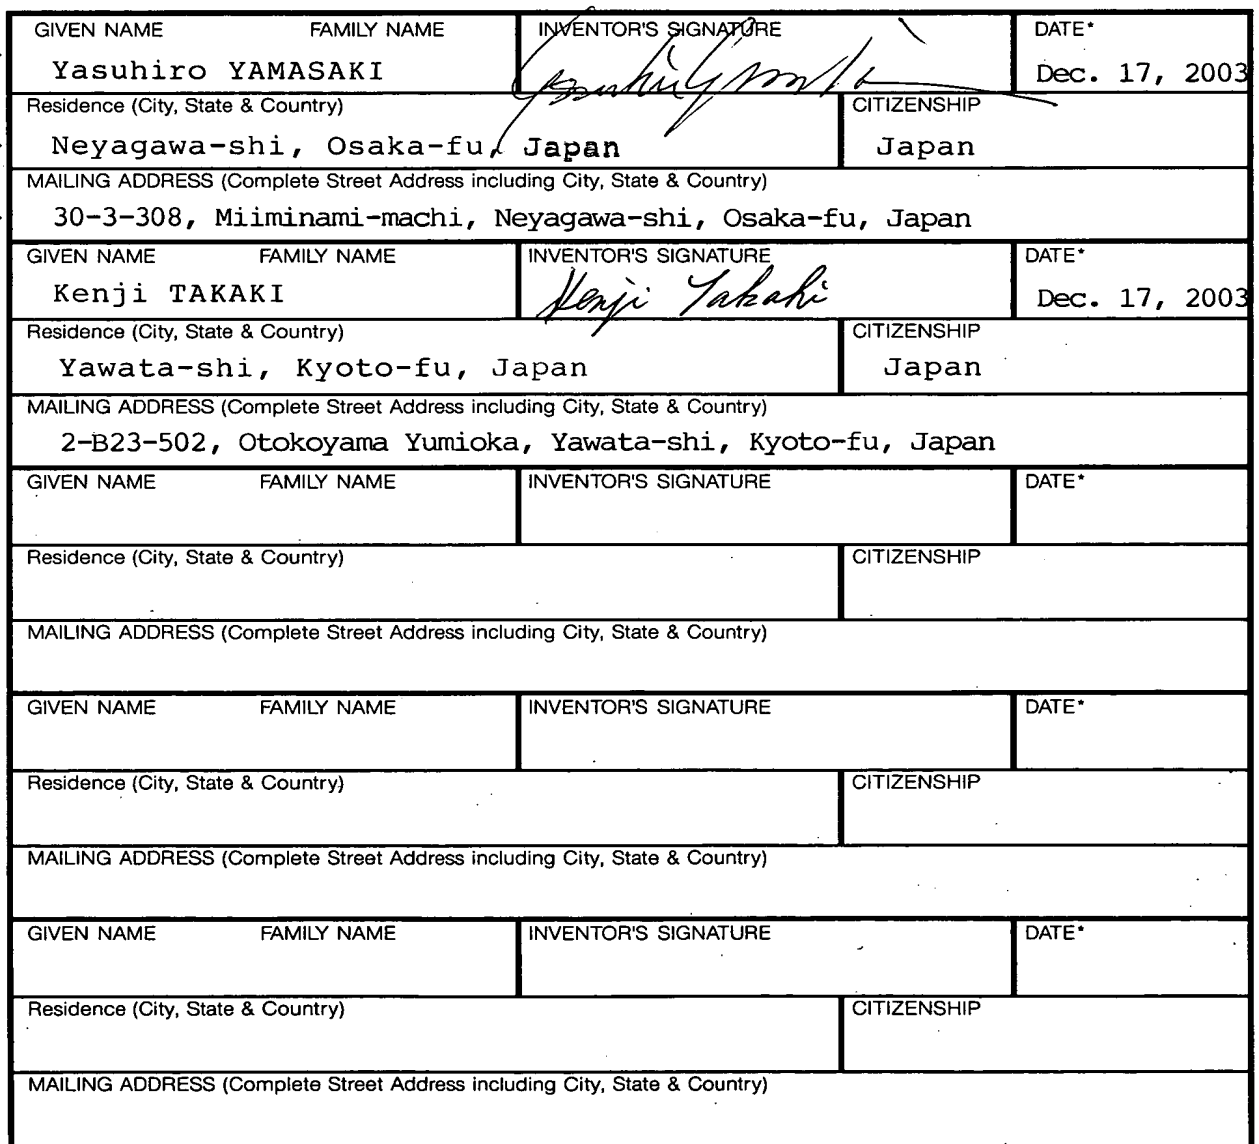 GIVEN NAME FAMILY NAME INVENTOR'S SIGNATURE DATE*
Yasuhiro YAMASAKI Dec. 17, 2003
Residence (City, State & Country) CITIZENSHIP
Neyagawa-shi, Osaka-fu, Japan Japan
MAILING ADDRESS (Complete Street Address including City, State & Country)
30-3-308, Miiminami-machi, Neyagawa-shi, Osaka-fu, Japan
GIVEN NAME FAMILY NAME INVENTOR'S SIGNATURE DATE*
Kenji TAKAKI Kenji Takaki Dec. 17, 2003
Residence (City, State & Country) CITIZENSHIP
Yawata-shi, Kyoto-fu, Japan Japan
MAILING ADDRESS (Complete Street Address including City, State & Country)
2-B23-502, Otokoyama Yumioka, Yawata-shi, Kyoto-fu, Japan
GIVEN NAME FAMILY NAME INVENTOR'S SIGNATURE DATE*
Residence (City, State & Country) CITIZENSHIP
MAILING ADDRESS (Complete Street Address including City, State & Country)
GIVEN NAME FAMILY NAME INVENTOR'S SIGNATURE DATE*
Residence (City, State & Country) CITIZENSHIP
MAILING ADDRESS (Complete Street Address including City, State & Country)
GIVEN NAME FAMILY NAME INVENTOR'S SIGNATURE DATE*
Residence (City, State & Country) CITIZENSHIP
MAILING ADDRESS (Complete Street Address including City, State & Country)